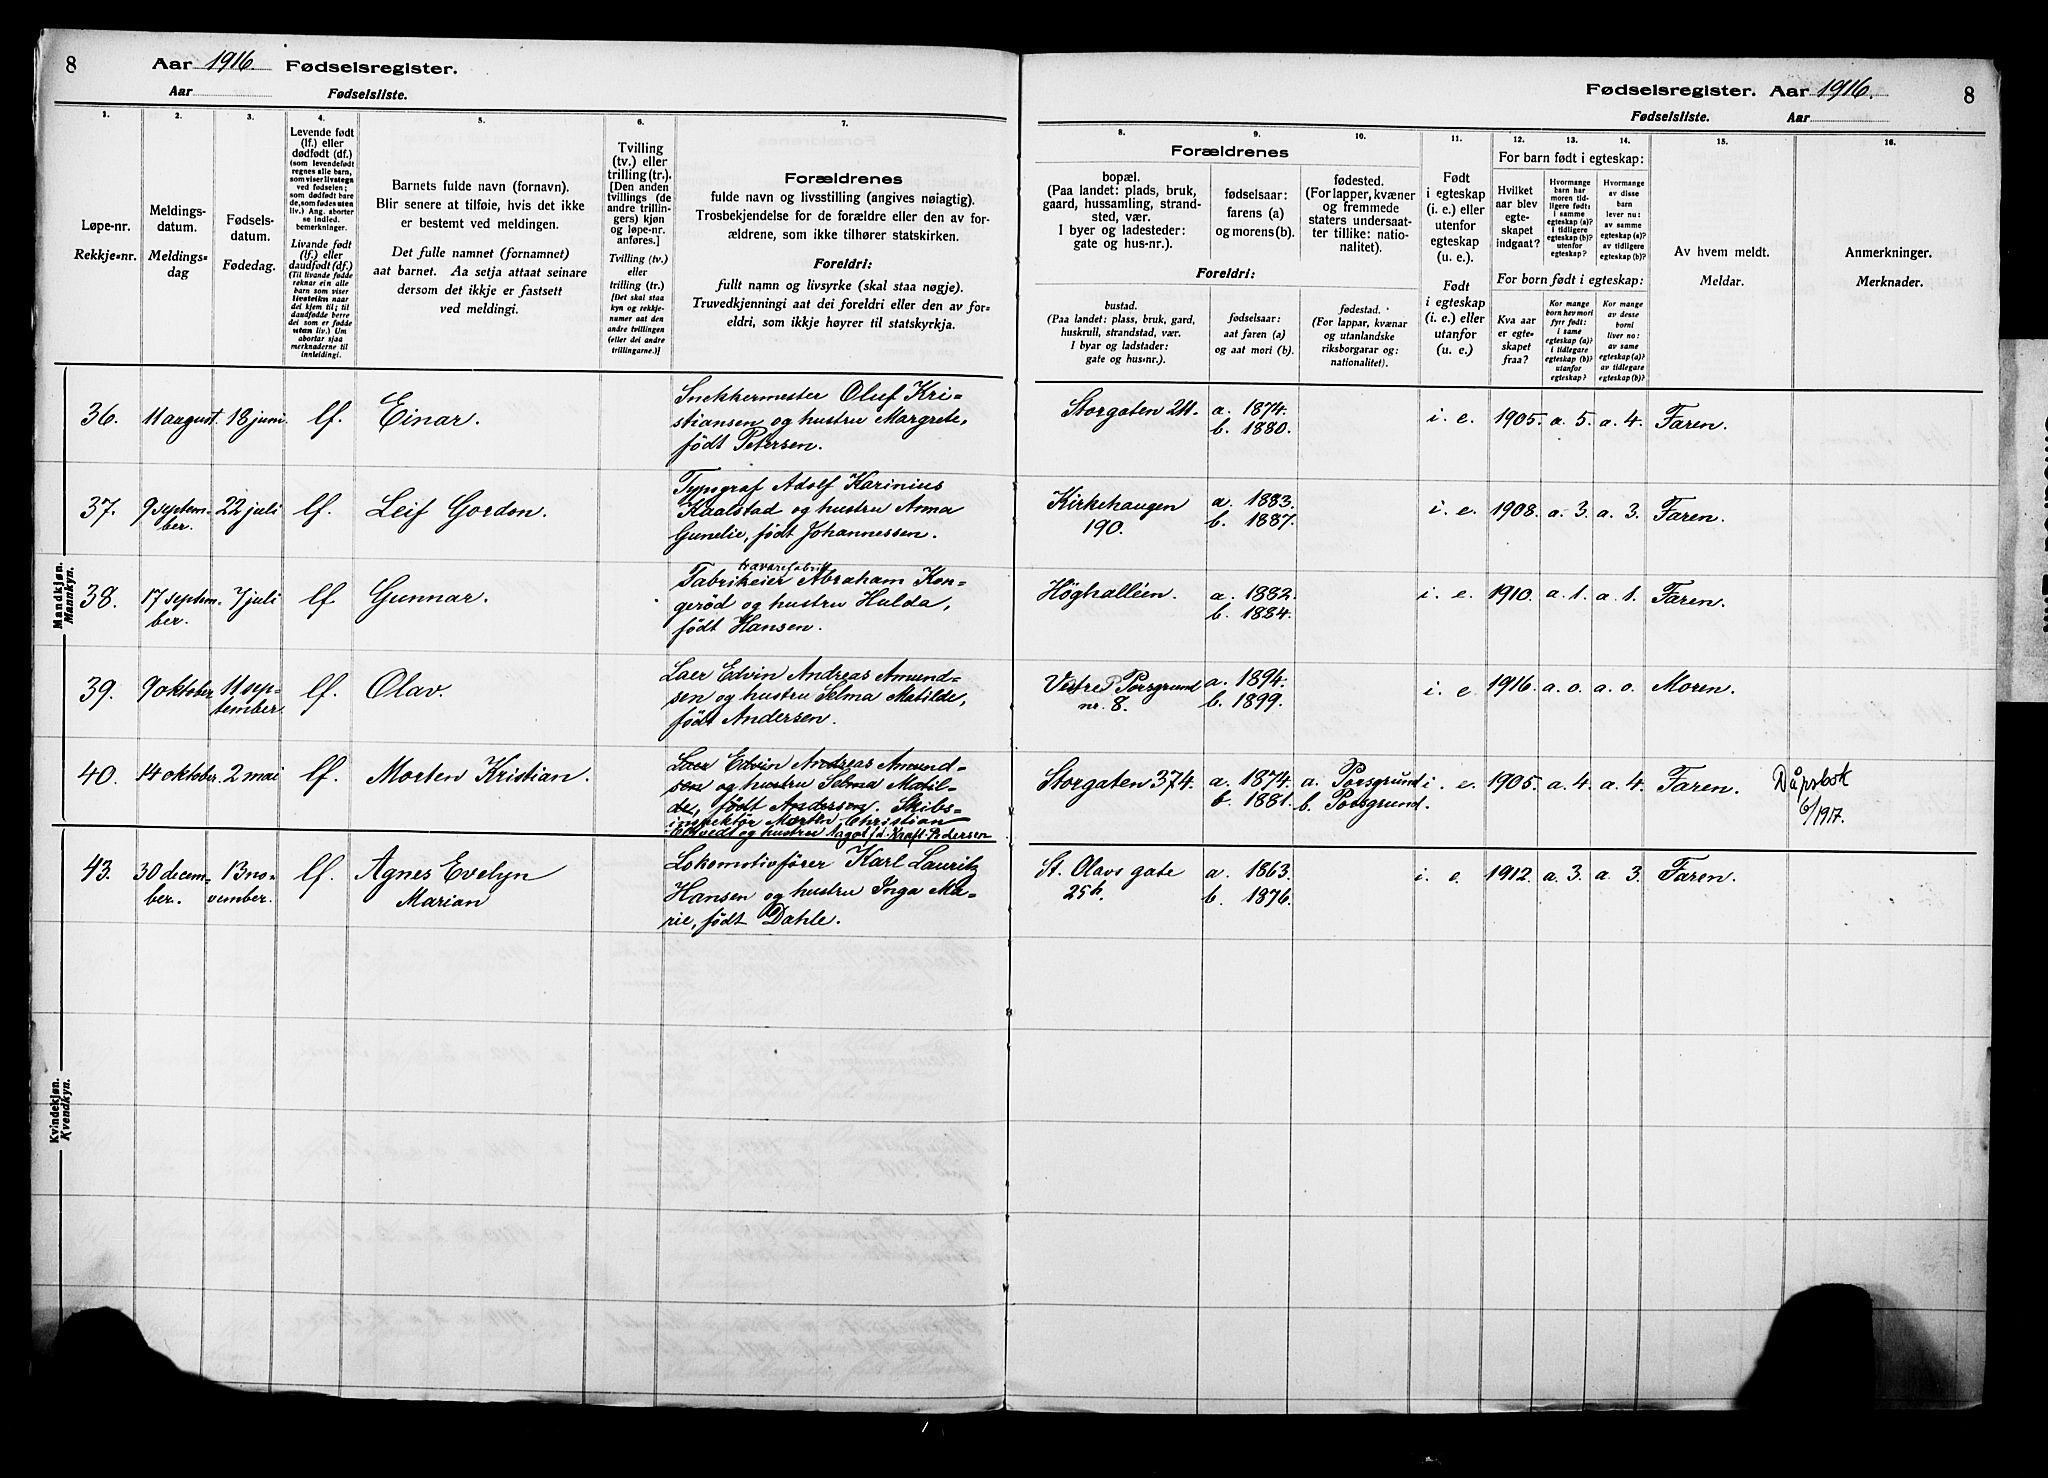 8
Aar 1916. Fødselsregister.
Aar Fødselsliste.
Fødselsregister. Aar 1916.
8
Fødselsliste. Aar
1.
Løpe-nr.
Rekkje-nr.
2.
Meldings-
datum.
Meldings-
dag
3.
Fødsels-
datum.
Fødedag.
4.
Levende født
(lf.) eller
dødfødt (df.)
(som levendefødt
regnes alle barn,
som viser livstegn
ved fødselen;
som dødfødt bare
de, som fødes uten
liv.) Ang. aborter
se indled.
bemerkninger.
Livande født
(lf.) eller
daudfødt (df.)
(Til livande fødde
reknar ein alle
barn som viser
livsteikn naar
dei kjem til; til
daudfødde berre
dei som er fødde
utan liv.) Um
abortar sjaa
merknaderne til
innleidingi.
5.
Barnets fulde navn (fornavn).
Blir senere at tilføie, hvis det ikke
er bestemt ved meldingen.
Det fulle namnet (fornamnet)
aat barnet. Aa setja attaat seinare
dersom det ikkje er fastsett
ved meldingi.
6.
Tvilling
(tv.) eller
trilling (tr.).
[Den anden
tvillings (de
andre trillin-
gers) kjøn
og løpe-nr.
anføres.]
Tvilling (tv.)
eller
trilling (tr.)
[Det skal staa
kyn og rekkje-
numer aat den
andre tvillingen
(eller dei andre
trillingarne.)]
7.
Forældrenes
fulde navn og livsstilling (angives nøiagtig).
Trosbekjendelse for de forældre eller den av for-
ældrene, som ikke tilhører statskirken.
Foreldri:
fullt namn og livsyrke (skal staa nøgje).
Truvedkjenningi aat dei foreldri eller den av for-
eldri, som ikkje høyrer til statskyrkja.
8.
9.
10.
Forældrenes
bopæl.
(Paa landet: plads, bruk,
gaard, hussamling, strand-
sted, vær.
I byer og ladesteder:
gate og hus-nr.).
fødselsaar:
farens (a)
og morens (b).
fødested.
(For lapper, kvæner
og fremmede
staters undersaat-
ter tillike: natio-
nalitet).
Foreldri:
bustad.
(Paa landet: plass, bruk, gard,
huskrull, strandstad, vær.
I byar og ladstader:
gate og hus-nr.).
fødselsaar:
aat faren (a)
og aat mori (b).
fødestad.
(For lappar, kvænar
og utanlandske
riksborgarar og:
nationalitet).
11.
Født
i egteskap
(i. e.) eller
utenfor
egteskap
(u. e.).
Født
i egteskap
(i. e.) eller
utanfor
(u. e.).
12.
13.
14.
For barn født i egteskap:
Hvilket
aar blev
egte-
skapet
indgaat?
Hvormange
barn har
moren tid-
ligere født:
i samme
egteskap (a)?
i tidligere
egteskap (b)?
utenfor
egteskap?
Hvormange
av disse
barn
lever nu:
av samme
egteskap (a)?
av tidligere
egteskap (b)?
For born født i egteskap:
Kva aar
er egte-
skapet
fraa?
Kor mange
born hev mori
fyrr født:
i same
egteskap (a)?
i tidlegare
egteskap (b)?
utanfor
egteskap?
Kor mange
av desse
borni
liver no:
av same
egteskap (a)?
av tidlegare
egteskap (b)?
15.
Av hvem meldt.
Meldar.
16.
Anmerkninger.
Merknader.
Mandkjøn.
Mannkyn.
36. 11 august. 18 juni. lf. Einar. Snekkermester Oluf Kri-
stiansen og hustru Margrete,
født Petersen.
Storgaten 211. a. 1874.
b. 1880.
i. e. 1905. a. 5. a. 4. Faren.
37. 9 septem-
ber. 22 juli lf. Leif Gordon. Typograf Adolf Karinius
Kaalstad og hustru Anna
Gunelie, født Johannessen.
Kirkehaugen
190.
a. 1883.
b. 1887.
i. e. 1908. a. 3. a. 3. Faren.
38. 17 septem-
ber. 7 juli lf. Gunnar. trævarefabrik
Fabrikeier Abraham Kon-
gerød og hustru Hulda,
født Hansen.
Höghalléen. a. 1882.
b. 1884.
i. e. 1910. a. 1. a. 1. Faren.
39. 9 oktober 11 sep-
tember. lf. Olav. Laer Edvin Andreas Amund-
sen og hustru Selma Matilde,
født Andersen.
Vestre Porsgrund
nr. 8.
a. 1894.
b. 1899.
i. e. 1916. a. o. a. o. Moren.
40. 14 oktober. 2 mai lf. Morten Kristian. Laer Edvin Andreas Amund-
sen og hustru Selma Matil-
de, født Andersen. Skibs-
inspektör Morten Christian
og hustru Aagot fd. Krafft-Pedersen
Storgaten 374. a. 1874.
b. 1881.
a. Porsgrund
b. Porsgrund.
i. e. 1905. a. 4. a. 4. Faren. Dåpsbok
6/1917.
Kvindekjøn.
Kvendkyn.
43. 30 decem-
ber. 13 no-
vember. lf. Agnes Evelyn
Marian
Lokomotivfører Karl Lauritz
Hansen og hustru Inga Ma-
rie, født Dahle.
St. Olavs gate
25b.
a. 1863.
b. 1876.
i. e. 1912. a. 3. a. 3. Faren.